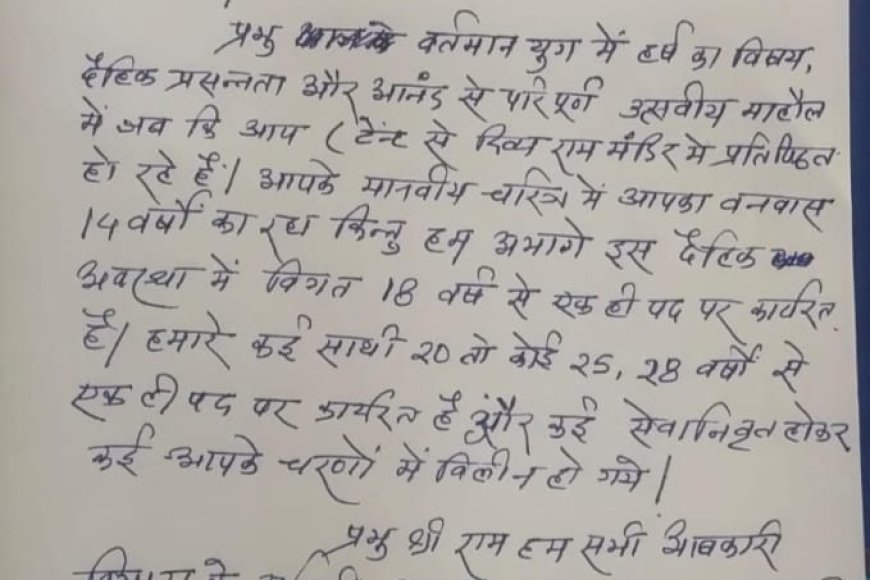 प्रभु वर्तमान युग में हर्ष का विषय,
दैहिक प्रसन्नता और आनंद से परिपूर्ण उत्सवीय माहौल
में जब कि आप (टेन्ट से दिव्य राम मंदिर में प्रतिष्ठित
हो रहे हैं। आपके मानवीय चरित्र में आपका वनवास
14 वर्षों का रहा किन्तु हम अभागे इस दैहिक
अवस्था में विगत 18 वर्ष से एक ही पद पर कार्यरत
है। हमारे कई साथी 20 तो कोई 25, 28 वर्षों से
एक ही पद पर कार्यरत है और कई सेवानिवृत होकर
कई आपके चरणों में विलीन हो गये।
प्रभु श्री राम हम सभी आबकारी